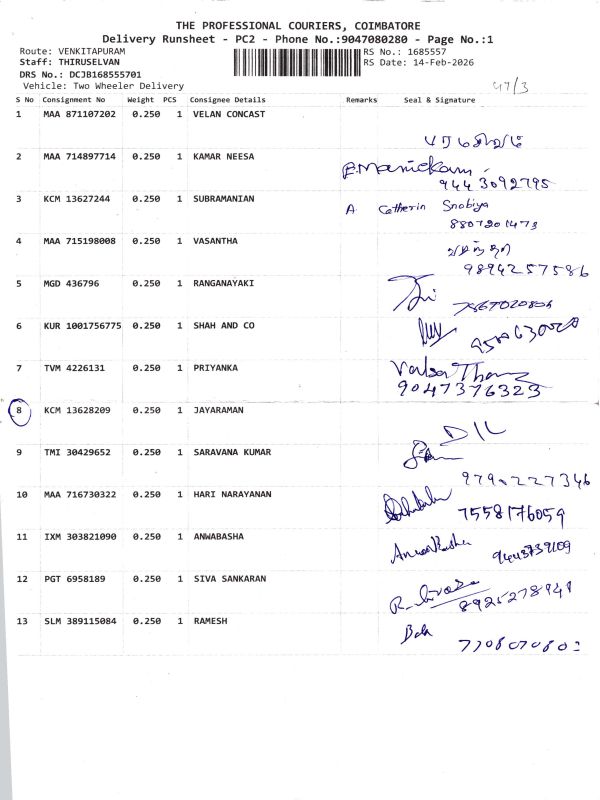 THE PROFESSIONAL COURIERS, COIMBATORE
Delivery Runsheet - PC2 - Phone No.:9047080280 - Page No.:1
Route: VENKITAPURAM RS No.: 1685557
Staff: THIRUSELVAN RS Date: 14-Feb-2026
DRS No.: DCJB168555701
Vehicle: Two Wheeler Delivery 47/3
S No Consignment No Weight PCS Consignee Details Remarks Seal & Signature
1 MAA 871107202 0.250 1 VELAN CONCAST
2 MAA 714897714 0.250 1 KAMAR NEESA
P.Manickam
9443092795
3 KCM 13627244 0.250 1 SUBRAMANIAN
A. Catherin Snobiya
8807201473
4 MAA 715198008 0.250 1 VASANTHA
வசந்தா
9894257586
5 MGD 436796 0.250 1 RANGANAYAKI
6 KUR 1001756775 0.250 1 SHAH AND CO
7 TVM 4226131 0.250 1 PRIYANKA
9047376323
8 KCM 13628209 0.250 1 JAYARAMAN
D/L
9 TMI 30429652 0.250 1 SARAVANA KUMAR
9790227346
10 MAA 716730322 0.250 1 HARI NARAYANAN
7558176059
11 IXM 303821090 0.250 1 ANWABASHA
Anwar Basha 9443739109
12 PGT 6958189 0.250 1 SIVA SANKARAN
8925278948
13 SLM 389115084 0.250 1 RAMESH
Bala